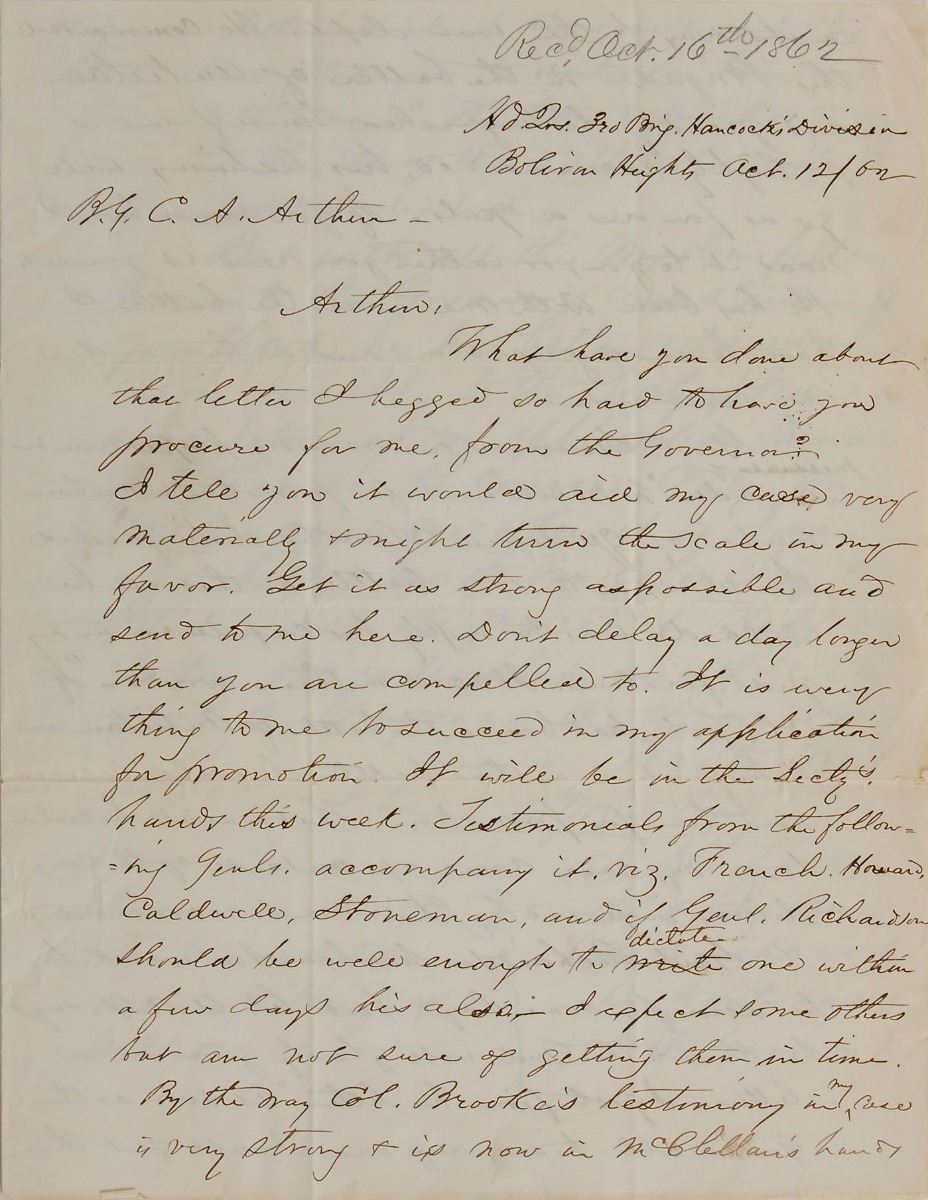 Rec'd, Oct. 16th 1862
Hd Qrs. 3rd Brig. Hancock's Division
Bolivar Heights Oct. 12/62
B. G. C. A. Arthur –
Arthur,
What have you done about
that letter I begged so hard to have you
procure for me, from the Governor?
I tele you it would aid my case very
materially & might turn the scale in my
favor. Get it as strong as possible and
send to me here. Don't delay a day longer
than you are compelled to. It is every
thing to me to succeed in my application
for promotion. It will be in the Secty's.
hands this week. Testimonials from the follow=
=ing Genls. accompany it. viz. French. Howard,
Caldwell, Stoneman, and if Genl. Richardson
dictate
should be well enough to write one within
a few days his also, – I expect some others
but am not sure of getting them in time.
By the way Col. Brooke's testimony in my case
is very strong & is now in McClellan's hands